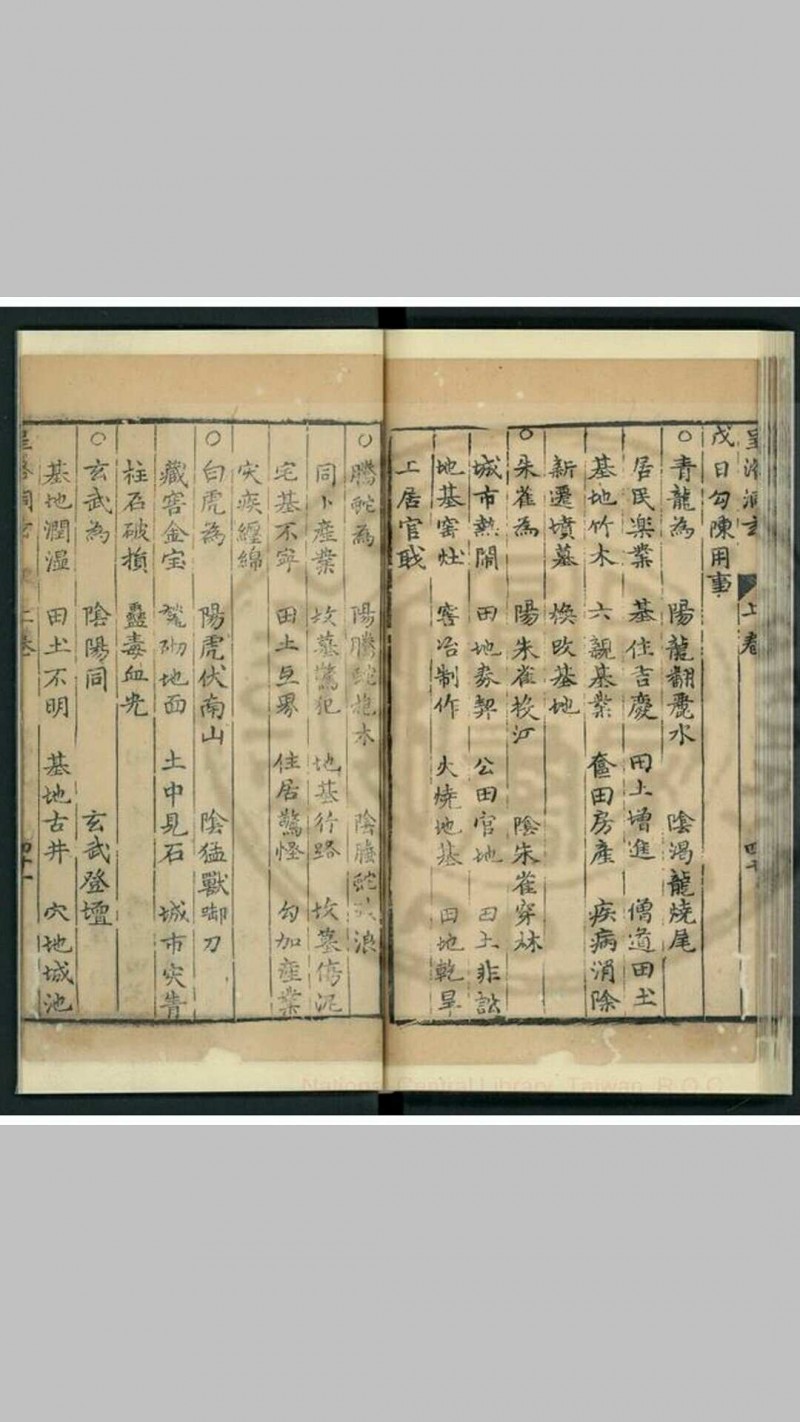 上卷 四十
戊日勾陳用事
○青龍為 陽龍翻麗水 陰渴龍燒尾
居民楽業 基住吉慶 田土增進 僧道田土
基地竹木 六親基業 奮田房産 疾病消除
新遷墳墓 換改基地
○朱雀為 陽朱雀投江 陰朱雀穿林
城市熱鬧 田地券契 公田官地 田土非訟
地基窰灶 窰冶制作 火燒地基 田地乾旱
工居官職
○騰蛇為 陽騰蛇抱木 陰騰蛇 浪
同卜産業 坟墓驚犯 地基行路 坟墓傷泥
宅基不寧 田土互界 住居驚怪 勾加産業
灾疾纏綿
○白虎為 陽虎伏南山 陰猛獸啣刀
藏窖金宝 砌地面 土中見石 城市灾眚
柱石破損 蠱毒血光
○玄武為 陰陽同 玄武登壇
基地潤湿 田土不明 基地古井 穴地城池
上卷 四十一
National Central Library, Taiwan, R.O.C